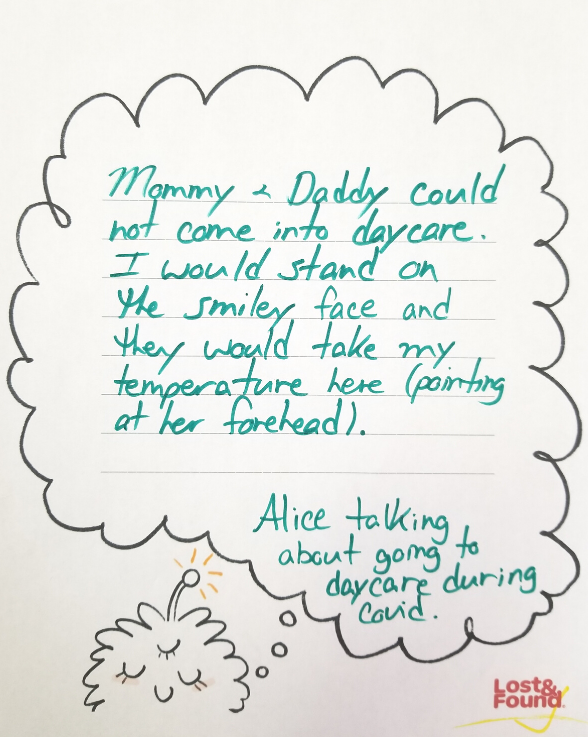 Mommy & Daddy could
not come into daycare.
I would stand on
the smiley face and
they would take my
temperature here (pointing
at her forehead).
Alice talking
about going to
daycare during
Covid.
Lost&
Found